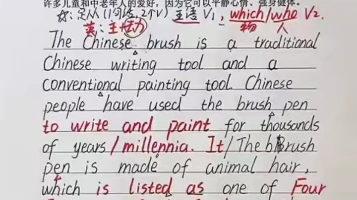 许多儿童和中老年人的爱好，因为它可以平静心情、强身健体。
定从(1句话,2个V) 主语 V₁, which/who V₂.
物 人
The Chinese brush is a traditional
Chinese writing tool and a
conventional painting tool. Chinese
people have used the brush pen
to write and paint for thousands
of years/millennia. It/The brush
pen is made of animal hair,
which is listed as one of Four